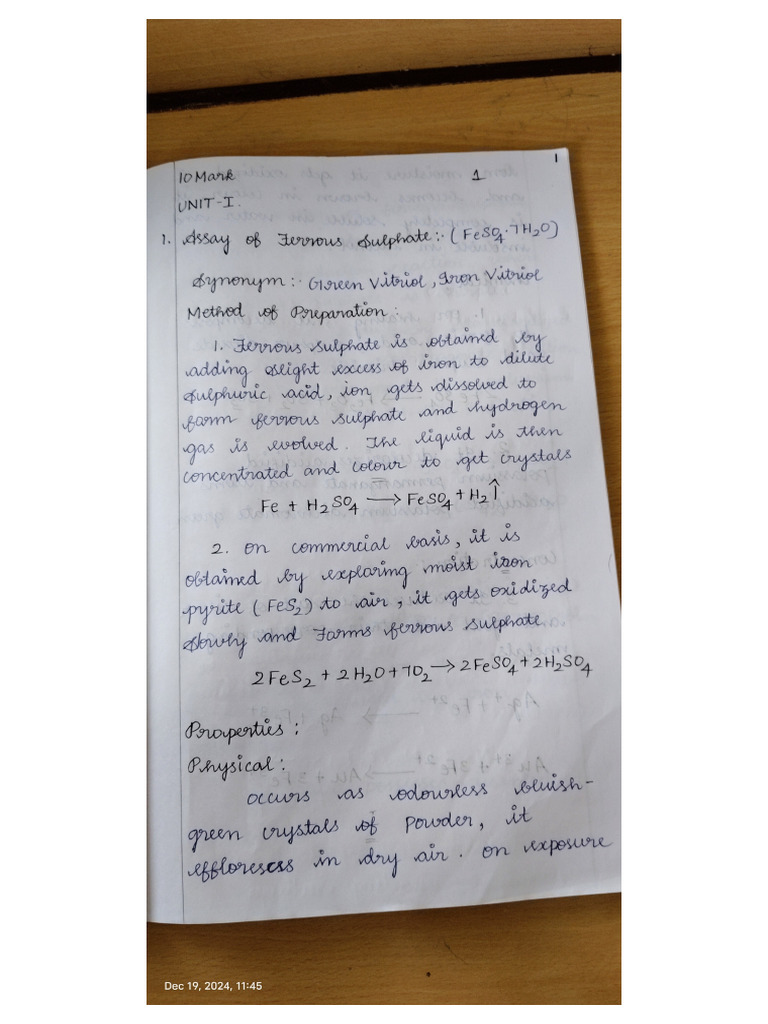 1
10 Mark 1
UNIT-I.
1. Assay of Ferrous Sulphate:- (FeSO₄·7H₂O)
Synonym:- Green Vitriol, Iron Vitriol
Method of Preparation:
1. Ferrous sulphate is obtained by
adding slight excess of iron to dilute
sulphuric acid, ion gets dissolved to
farm ferrous sulphate and hydrogen
gas is evolved. The liquid is then
concentrated and colour to get crystals
Fe + H₂SO₄ → FeSO₄ + H₂↑
2. on commercial basis, it is
obtained by exploring moist iron
pyrite (FeS₂) to air, it gets oxidized
slowly and Farms ferrous sulphate.
2FeS₂ + 2H₂O + 7O₂ → 2FeSO₄ + 2H₂SO₄
Properties:
Physical:
occurs as odourless bluish-
green crystals of powder, it
effloresces in dry air. on exposure
Dec 19, 2024, 11:45